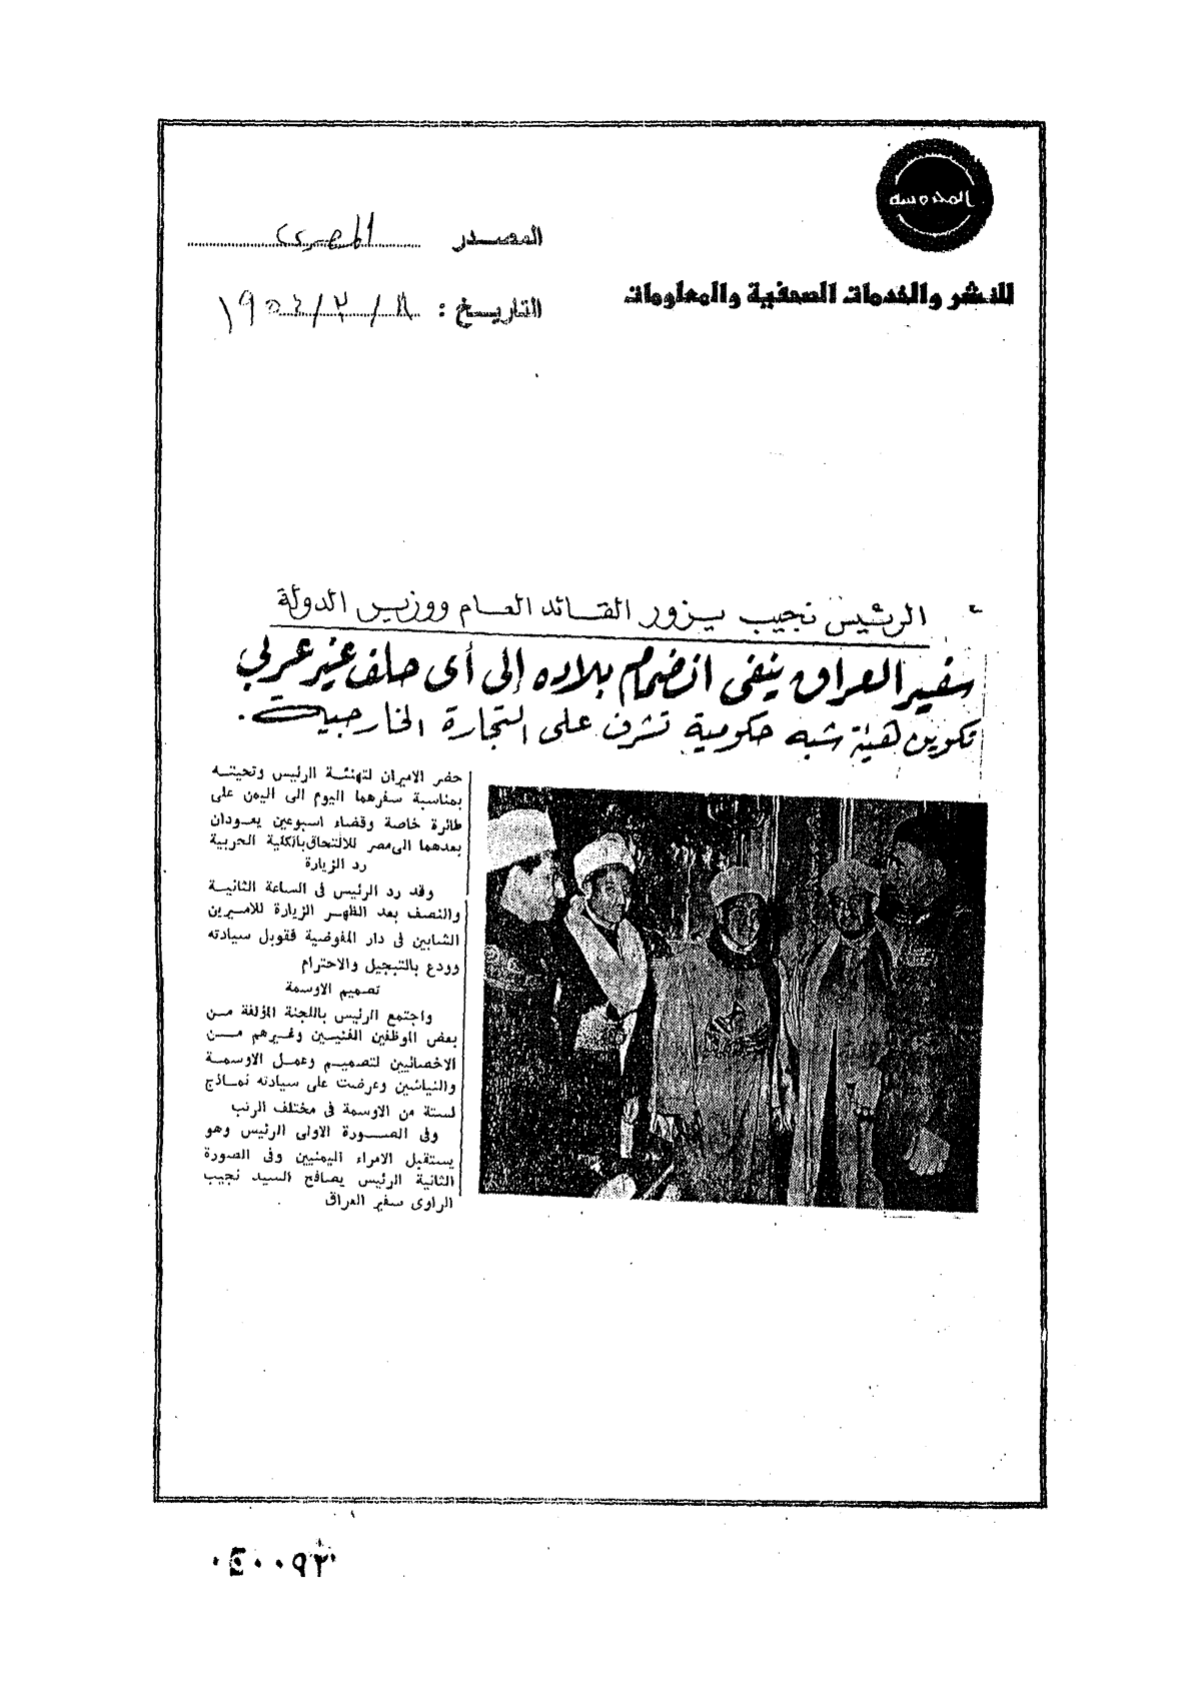 المحروسة
للنشر والخدمات الصحفية والمعلومات
المصدر المصرى
التاريخ : ٨ / ٣ / ١٩٥٤
الرئيس نجيب يزور القائد العام ووزير الدولة
سفير العراق ينفى انضمام بلاده إلى أى حلف غير عربي
تكوين هيئة شبه حكومية تشرف على التجارة الخارجية .
حضر الاميران لتهنئة الرئيس وتحيته
بمناسبة سفرهما اليوم الى اليمن على
طائرة خاصة وقضاء اسبوعين يعودان
بعدهما الى مصر للالتحاق بالكلية الحربية
رد الزيارة
وقد رد الرئيس فى الساعة الثانية
والنصف بعد الظهر الزيارة للاميرين
الشابين فى دار المفوضية فقوبل سيادته
وودع بالتبجيل والاحترام
تصميم الاوسمة
واجتمع الرئيس باللجنة المؤلفة من
بعض الموظفين الفنيين وغيرهم من
الاخصائيين لتصميم وعمل الاوسمة
والنياشين وعرضت على سيادته نماذج
لستة من الاوسمة فى مختلف الرتب
وفى الصورة الاولى الرئيس وهو
يستقبل الامراء اليمنيين وفى الصورة
الثانية الرئيس يصافح السيد نجيب
الراوى سفير العراق